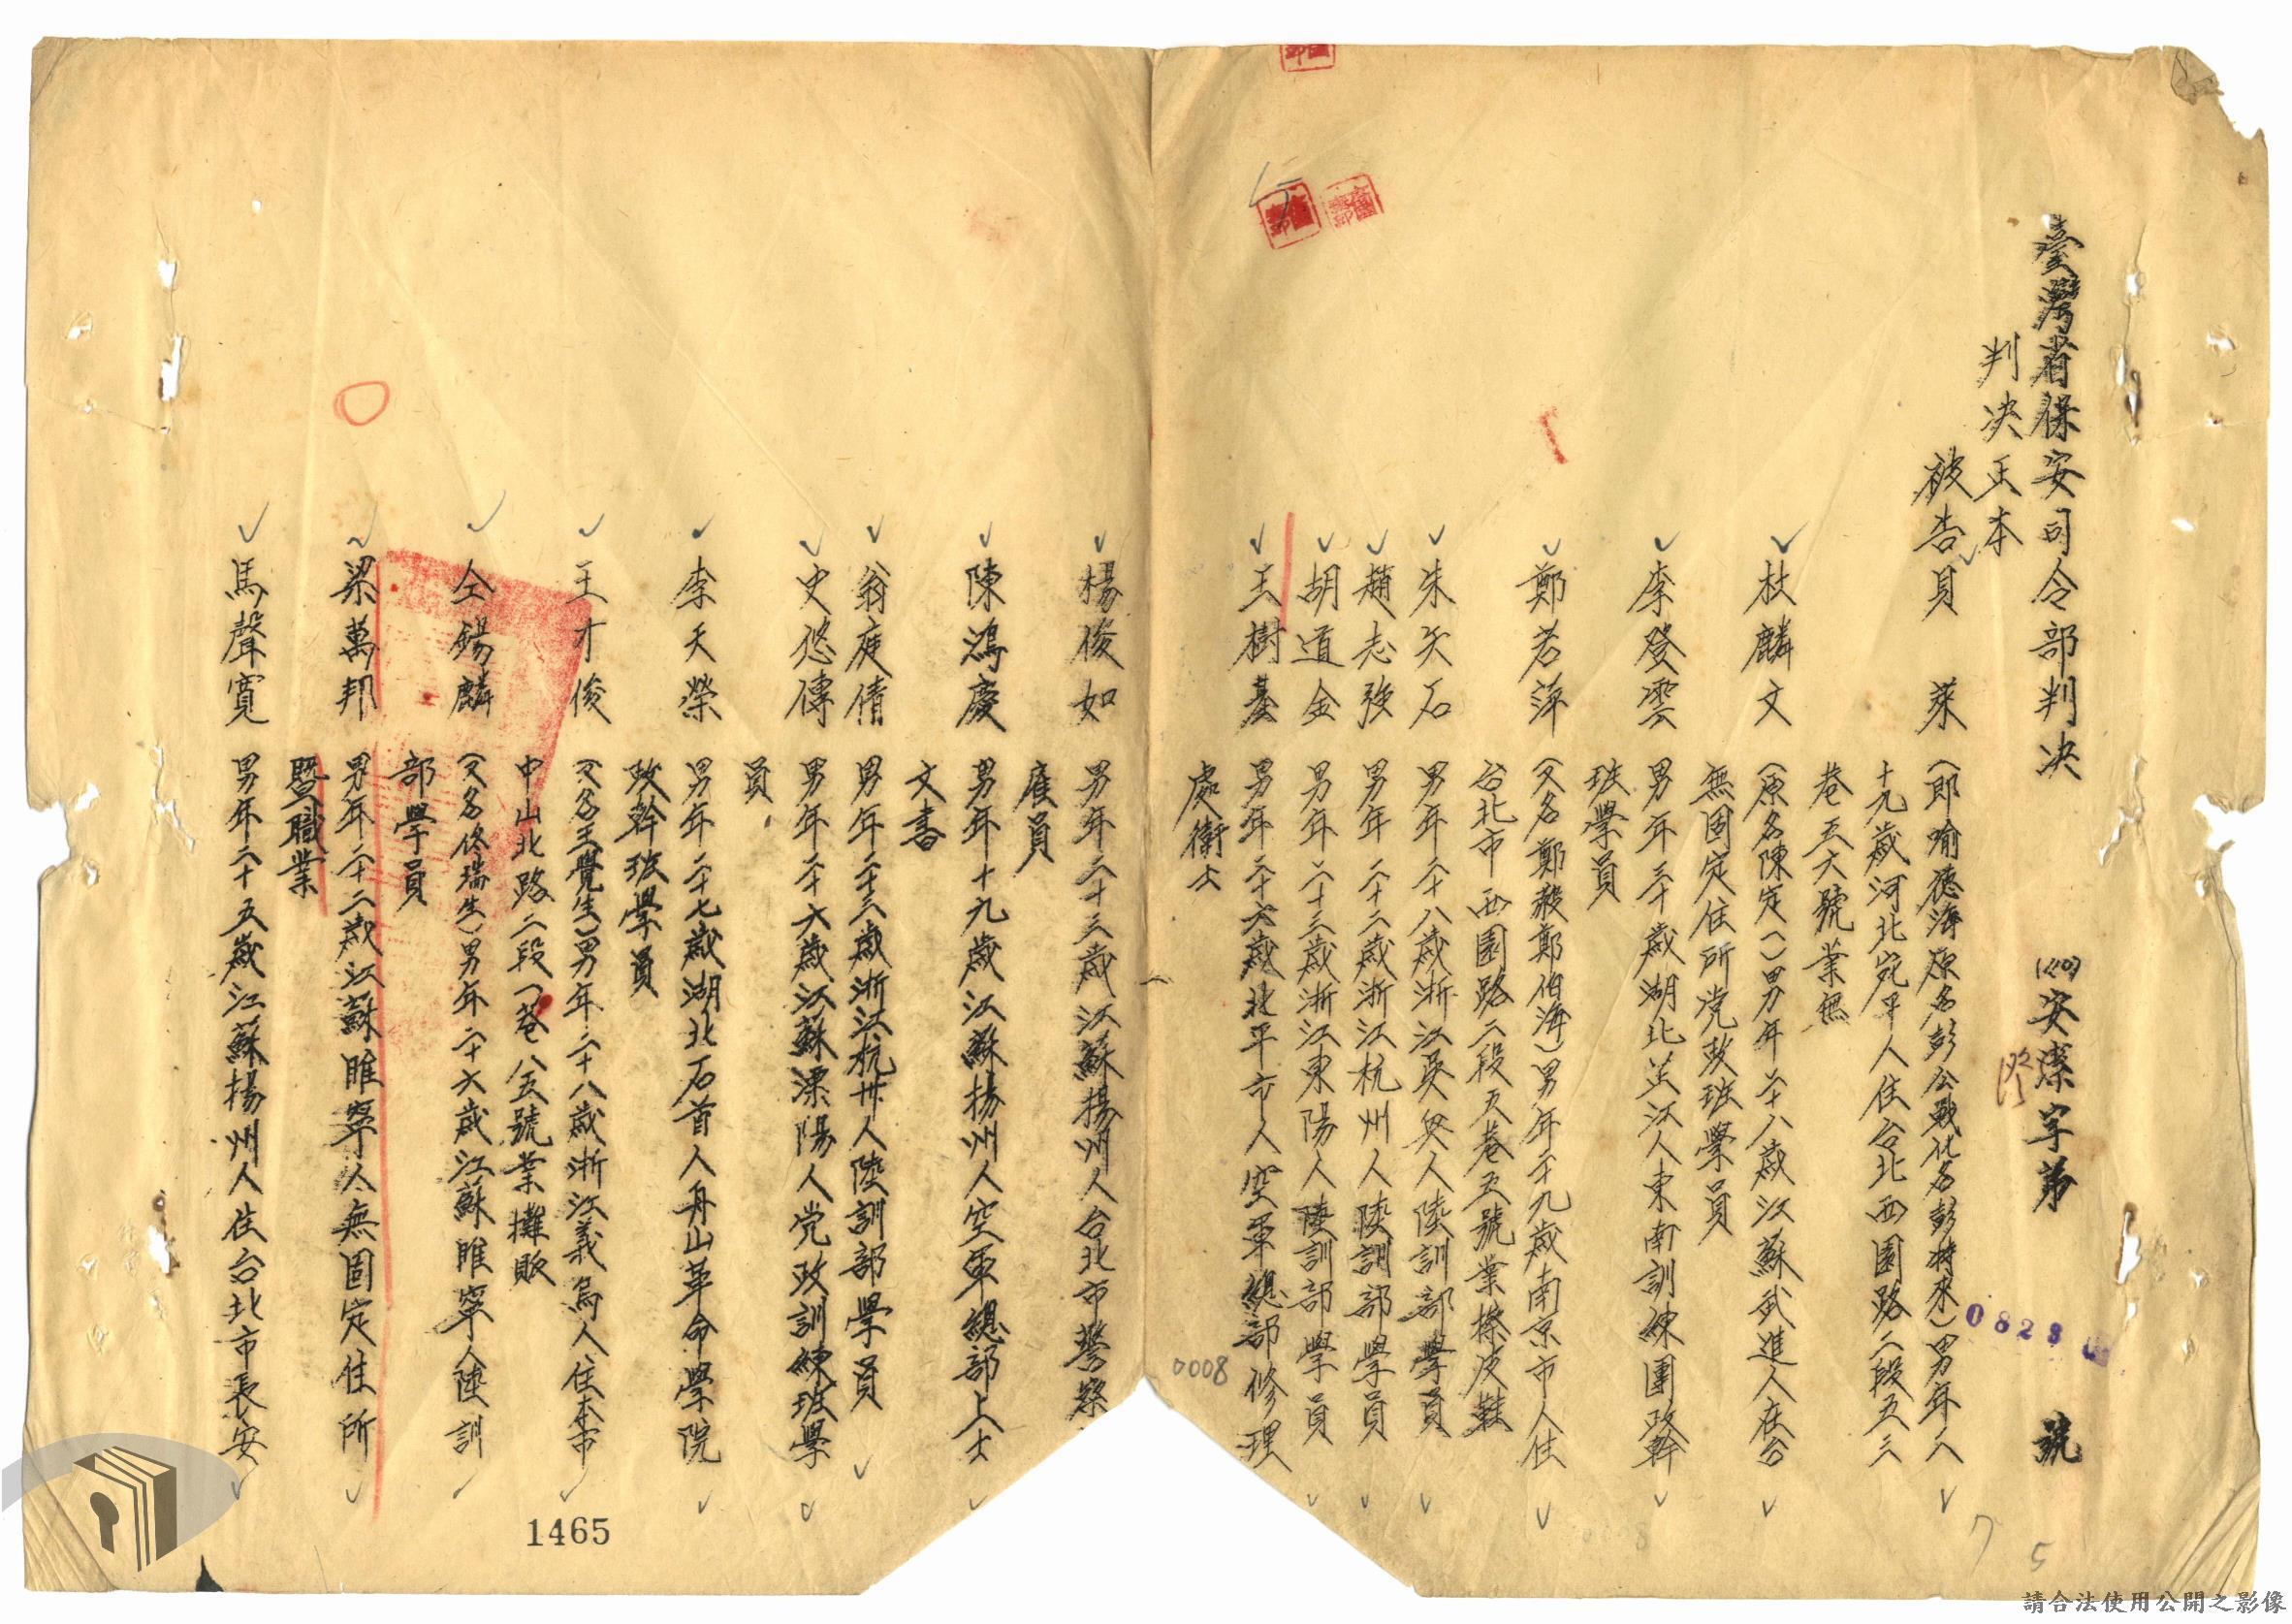 臺灣省保安司令部判決
(40)安潔字第 號
0823
判決正本
被告員 萊 (即喻德海原名彭公戰化名彭特來)男年二
十九歲河北宛平人住台北西園路二段五三
巷五六號業無
杜麟文 (原名陳定一)男年二十八歲江蘇武進人在台
無固定住所党政班學員
李登雲 男年三十歲湖北芷江人東南訓練團政幹
班學員
鄭若萍 (又名鄭毅鄭伯海)男年二十九歲南京市人住
台北市西園路二段五巷五號業擦皮鞋
朱矢石 男年二十八歲浙江吳興人陸訓部學員
趙志強 男年二十二歲浙江杭州人陸訓部學員
胡道金 男年二十三歲浙江東陽人陸訓部學員
王樹基 男年二十六歲北平市人空軍總部修理
處衛士
0008
楊俊如 男年二十三歲江蘇揚州人台北市警察
雇員
陳鴻慶 男年十九歲江蘇揚州人空軍總部上士
文書
翁庭倩 男年二十三歲浙江杭州人陸訓部學員
史悠傳 男年二十六歲江蘇溧陽人党政訓練班學
員
李天榮 男年二十七歲湖北石首人舟山革命學院
政幹班學員
王才俊 (又名王覺生)男年二十八歲浙江義烏人住本市
中山北路二段一巷八五號業攤販
仝錫麟 (又名佟瑞生)男年二十六歲江蘇睢寧人陸訓
部學員
梁萬邦 男年二十二歲江蘇睢寧人無固定住所
暨職業
馬聲寬 男年二十五歲江蘇揚州人住台北市長安
1465
請合法使用公開之影像